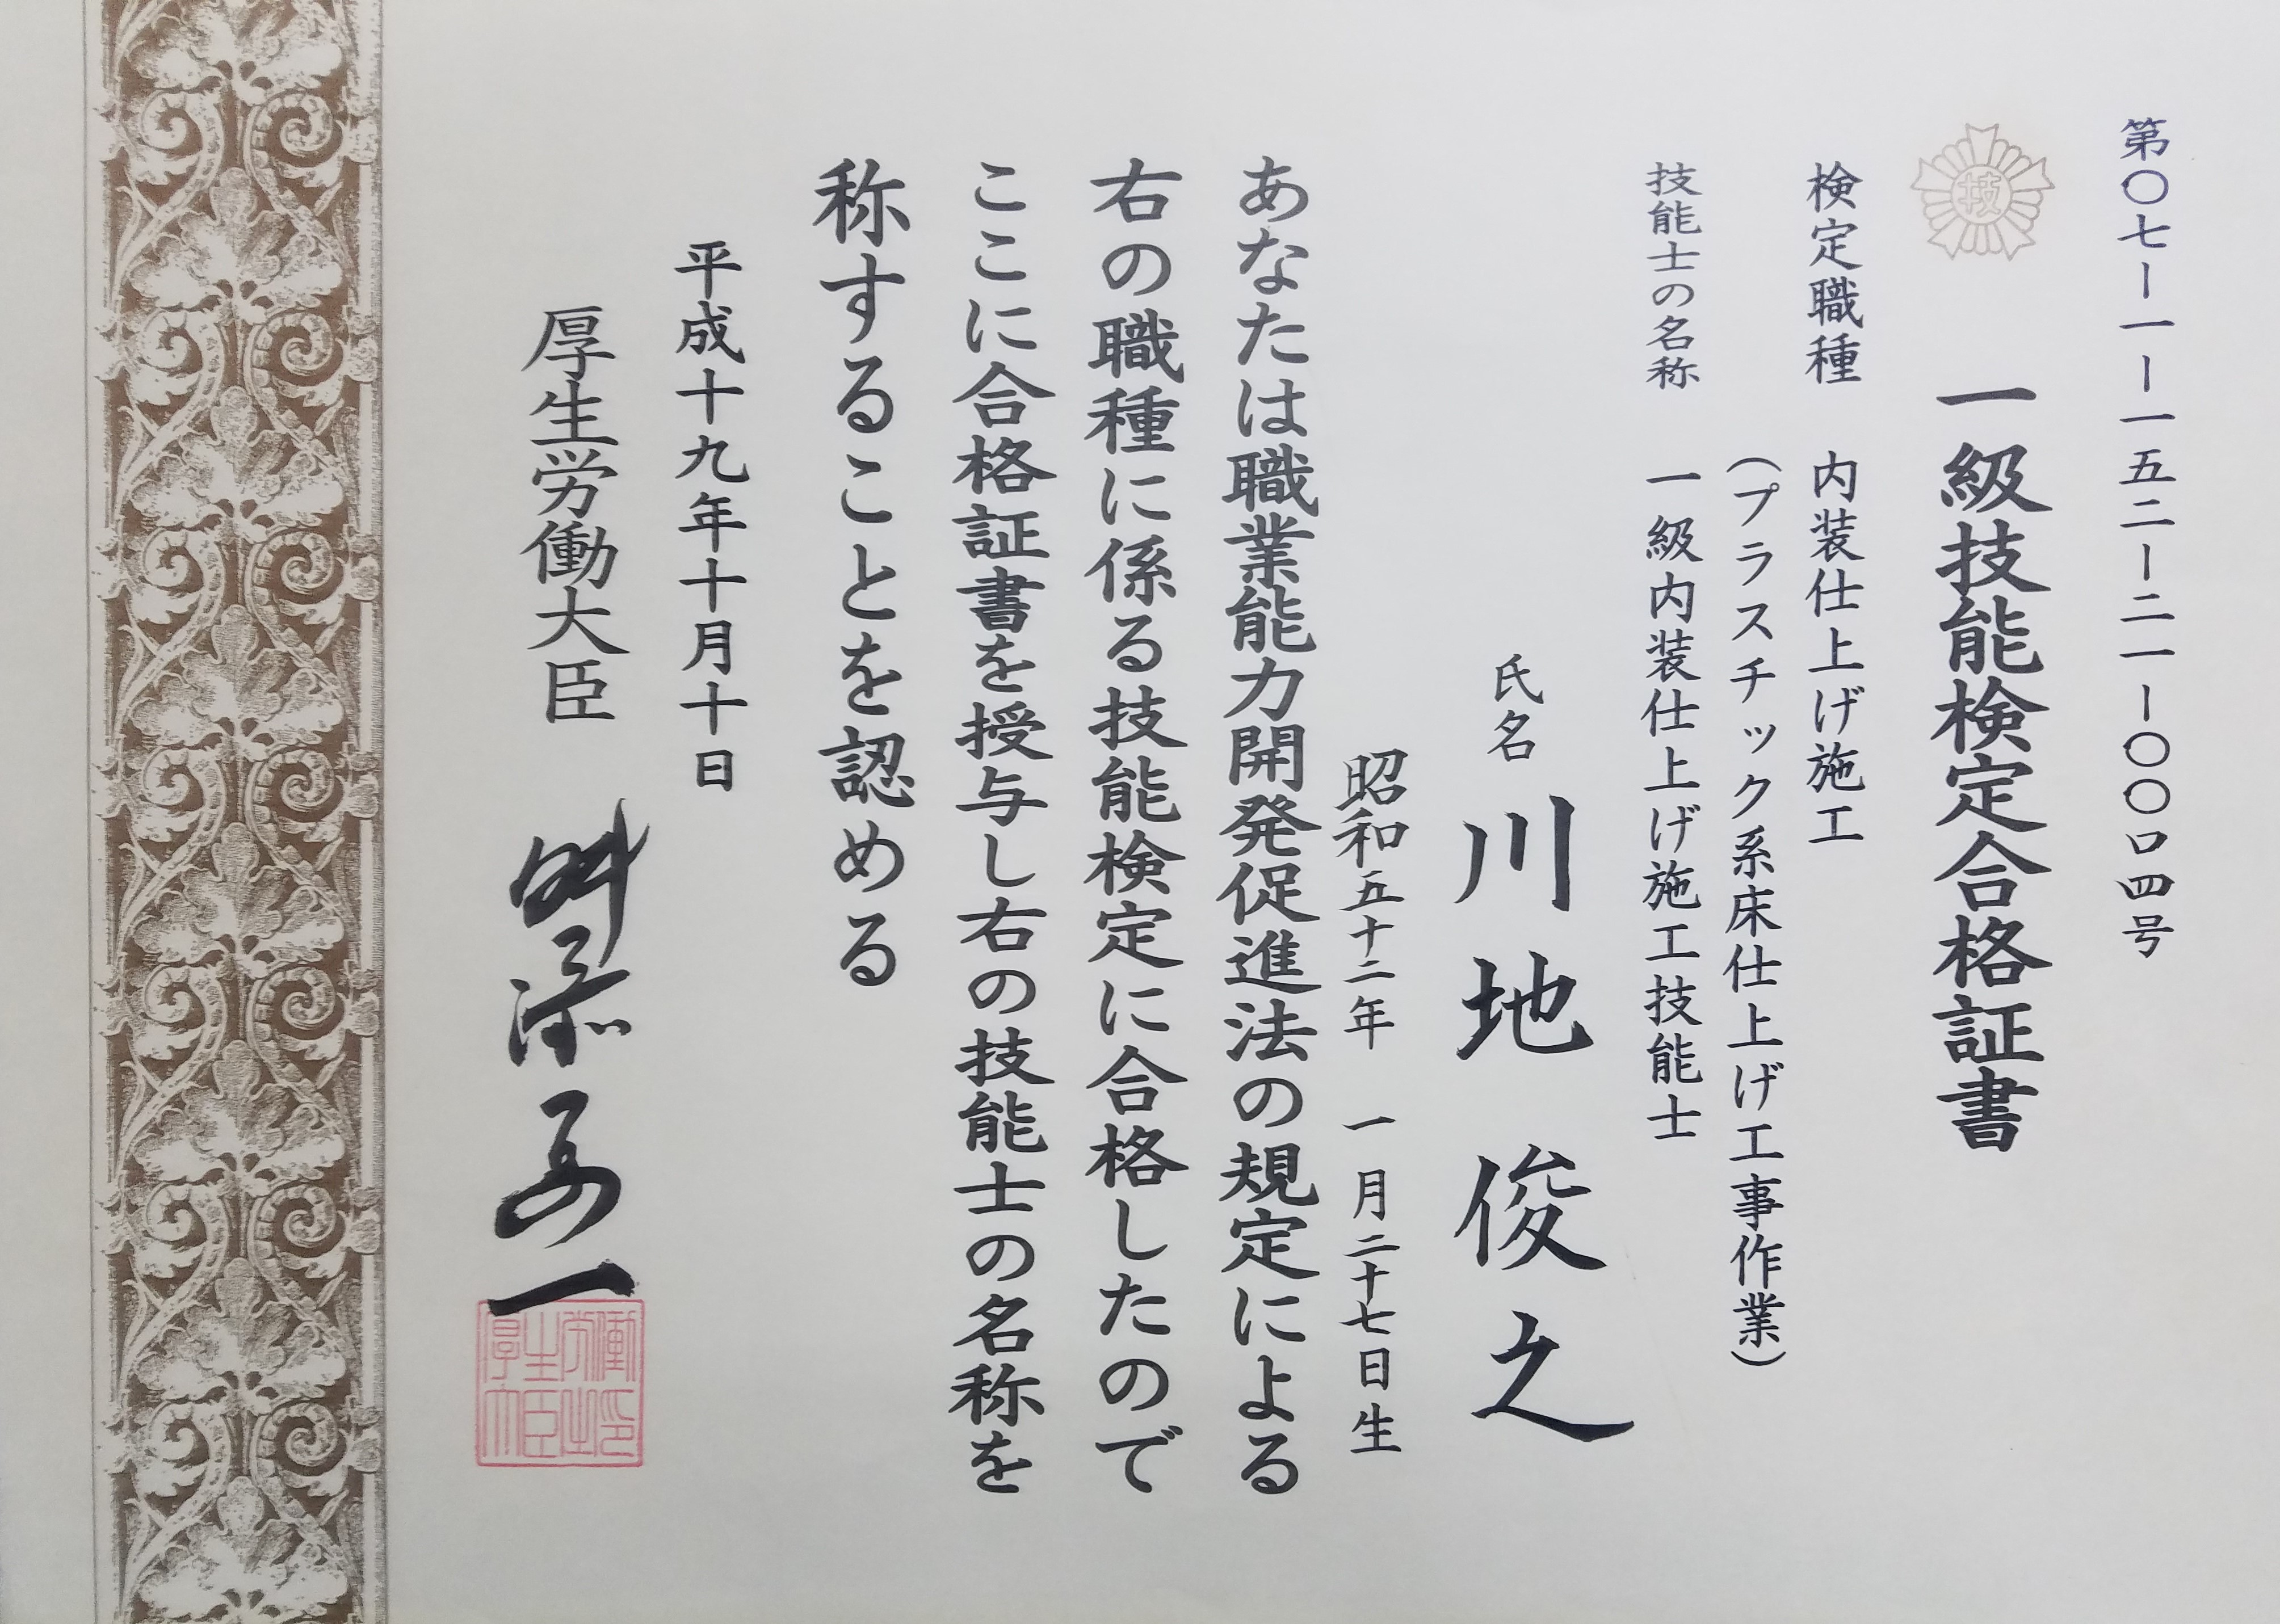 第〇七ー一ー一五二ー二一ー〇〇口四号
技
一級技能検定合格証書
検定職種　内装仕上げ施工
(プラスチック系床仕上げ工事作業)
技能士の名称　一級内装仕上げ施工技能士
氏名　川地　俊之
昭和五十二年　一月二十七日生
あなたは職業能力開発促進法の規定による
右の職種に係る技能検定に合格したので
ここに合格証書を授与し右の技能士の名称を
称することを認める
平成十九年十月十日
厚生労働大臣　舛添要一